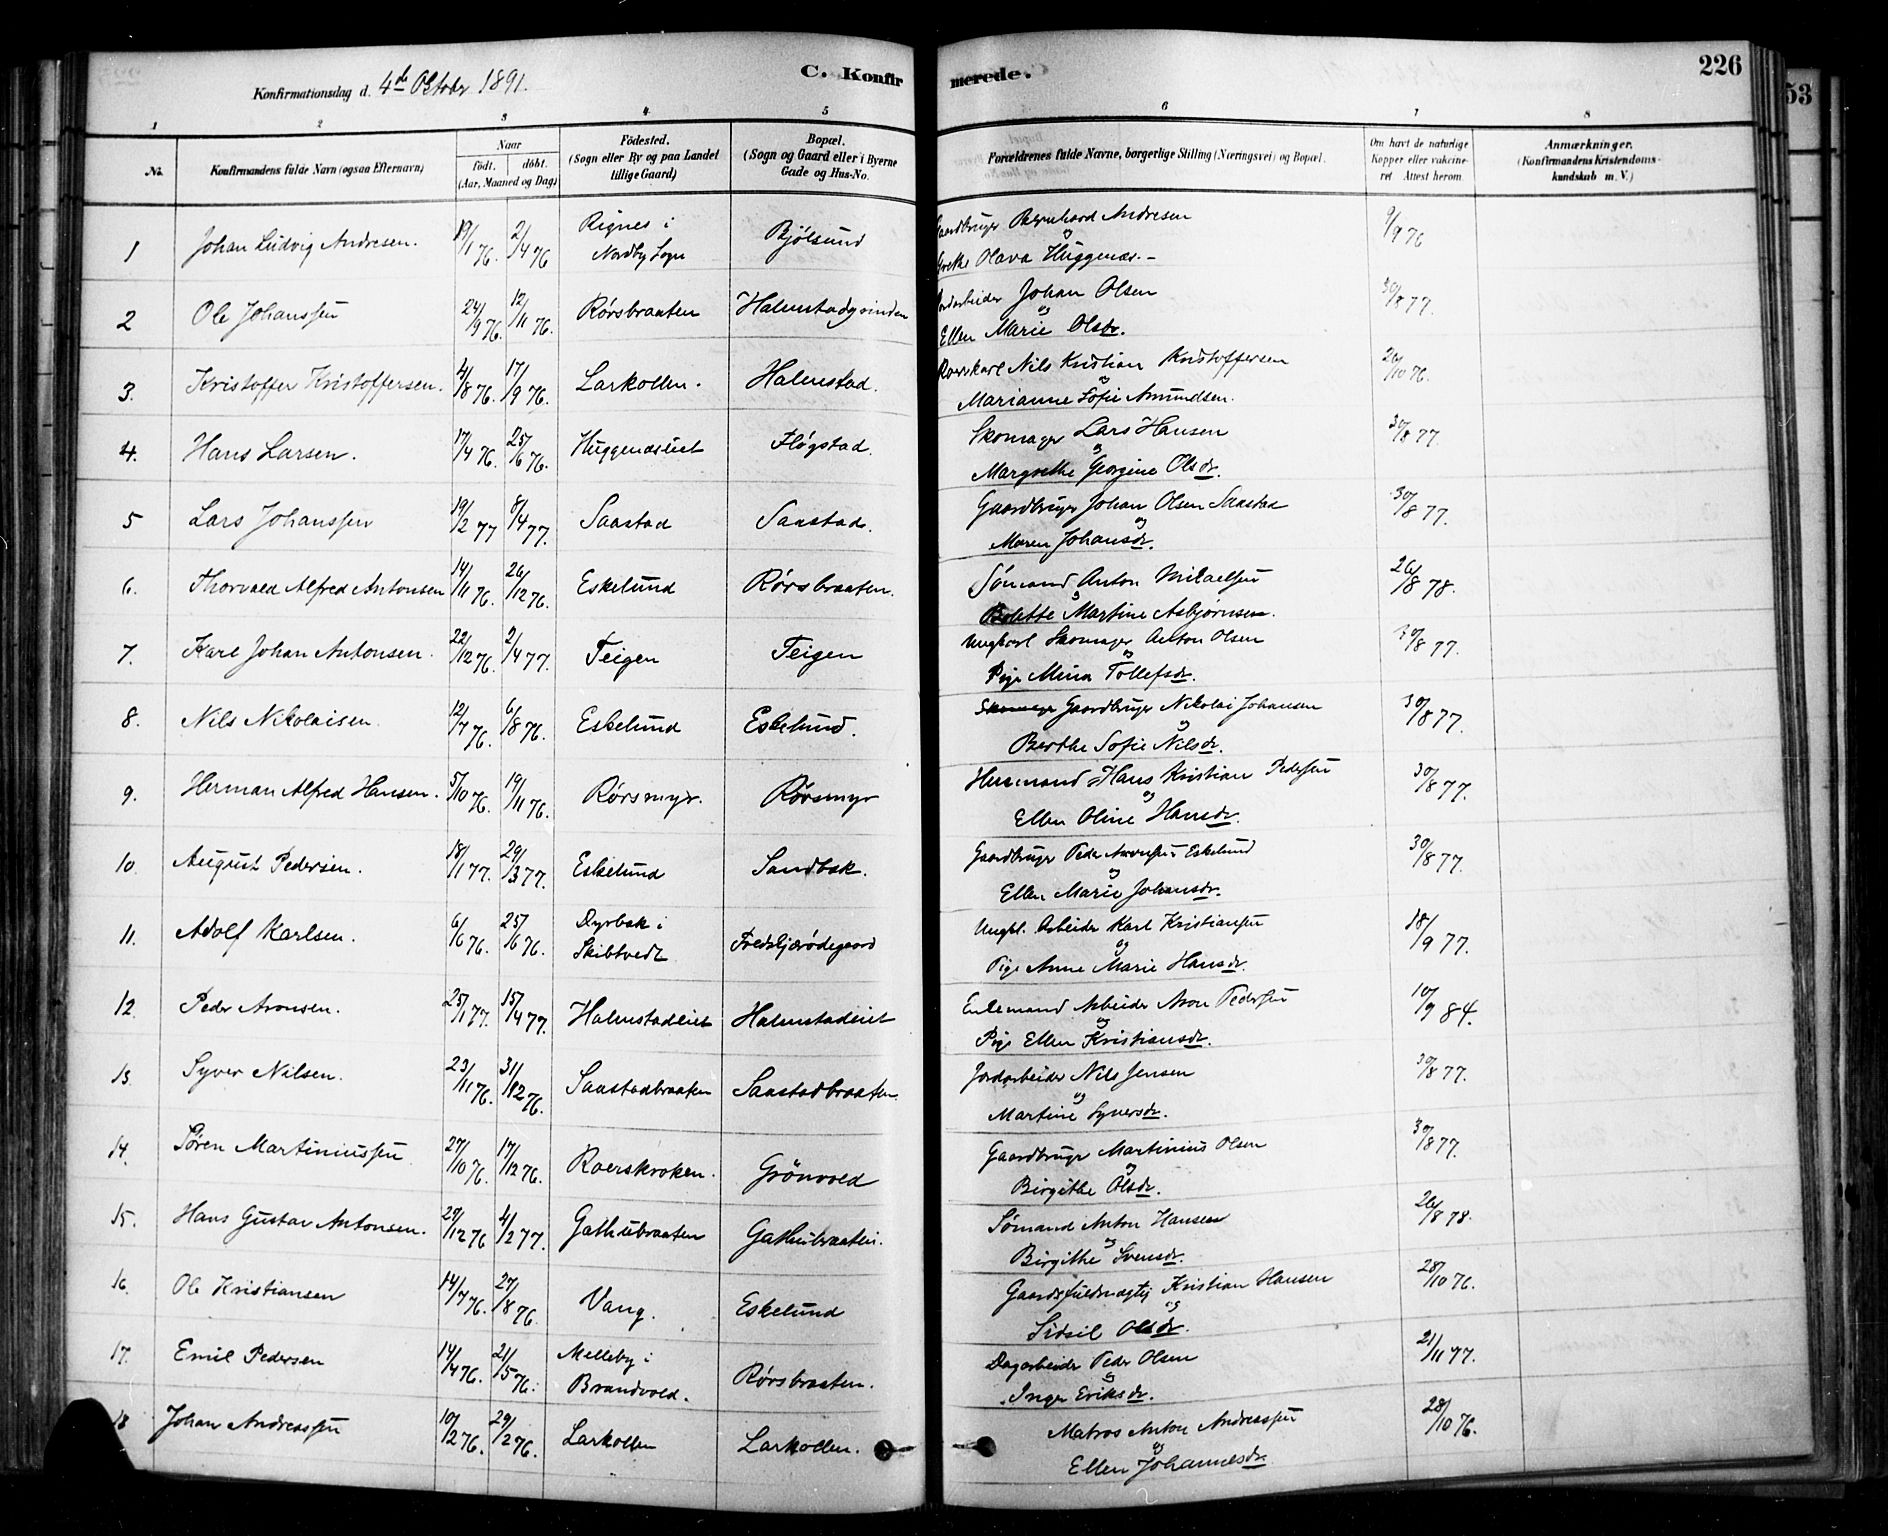 C. Konfir merede. 226
53
Konfirmationsdag d. 4de Oktober 1891.
1 2 3 4 5 6 7 8
No. Konfirmandens fulde Navn (ogsaa Efternavn) Naar født. døbt. (Aar, Maaned og Dag) Fødested. (Sogn eller By og paa Landet tillige Gaard) Bopæl. (Sogn og Gaard eller i Byerne Gade og Hus-No. Forældrenes fulde Navne, borgerlige Stilling (Næringsvei) og Bopæl. Om havt de naturlige Kopper eller vakcineret Attest herom. Anmærkninger. (Konfirmandens Kristendomskundskab m. V.)
1 Johan Ludvig Andresen. 19/1 76. 2/4 76 Rignes i Nordby Sogn Bjølsund Gaardbruger Bernhard Andresen og Grethe Olava Huggenæs.- 9/9 76
2 Ole Johanssen 24/9 76. 12/11 76. Rørsbraaten Halmstadgvinden Jordarbeider Johan Olsen og Ellen Marie Olsdr. 30/8 77.
3. Kristoffer Kristoffersen. 4/8 76. 17/9 76. Larkollen. Halmstad. Roerskarl Nils Kristian Kristoffersen og Marianne Sofie Amundsen. 26/10 76.
4. Hans Larsen. 17/4 76. 25/6 76. Huggenæseiet Fløgstad. Skomager Lars Hansen og Margrethe Georgine Olsdr. 30/8 77.
5 Lars Johanssen 19/2 77 8/4 77. Saastad Saastad. Gaardbruger Johan Olsen Saastad og Maren Johansdr. 30/8 77.
6. Thorvald Alfred Antonsen 14/11 76. 26/12 76. Eskelund Rørsbraaten. Sømand Anton Mikaelsen og Bolette Martine Asbjørnsen. 26/8 78.
7. Karl Johan Antonsen. 22/12 76. 2/4 77. Teigen Teigen Ungkarl Skomager Anton Olsen og Pige Mina Tollefsdr. 30/8 77.
8. Nils Nikolaisen. 12/7 76. 6/8 76. Eskelund Eskelund. Skomager Gaardbruger Nikolai Johansen og Berthe Sofie Nilsdr. 30/8 77.
9. Herman Alfred Hansen. 5/10 76. 19/11 76. Rørsmyr. Rørsmyr Husmand Hans Kristian Pedersen og Ellen Oline Hansdr. 30/8 77.
10. August Pedersen. 18/1 77. 29/3 77. Eskelund Sandbæk. Gaardbruger Peder Eskelund og Ellen Marie Johansdr. 30/8 77.
11. Adolf Karlsen. 6/6 76. 25/6 76. Dyrbæk i Skibtvedt Ungk. Arbeider Karl Kristiansen og Pige Anne Marie Hansdr. 18/9 77.
12. Peder Aronsen. 25/1 77. 15/4 77. Halmstadeiet Halmstadeiet Enkemand Arbeider Aron Pedersen og Pige Ellen Kristiansdr. 10/9 84.
13. Syver Nilsen. 23/11 76. 31/12 76. Saastadbraaten Saastadbraaten. Jordarbeider Nils Jensen og Martine Syversdr. 30/8 77.
14. Søren Martiniussen 27/10 76. 17/12 76. Roerskroken. Grønvold Gaardbruger Martinius Olsen og Birgithe Olsdr. 30/8 77.
15. Hans Gustav Antonsen. 29/12 76 4/2 77. Gathubraaten Gathubraaten. Sømand Anton Hansen og Birgithe Svensdr. 26/8 78.
16. Ole Kristiansen 14/7 76. 27/8 76. Vang. Eskelund Gaardsfuldmægtig Kristian Hansen og Sidsil Olsdr. 28/10 76.
17. Emil Pedersen 14/4 76. 21/5 76. Melleby i Brandvold. Rørsbraaten. Dagarbeider Peder Olsen og Inger Eriksdr. 21/11 77.
18 Johan Andreassen 10/2 76. 29/2 76. Larkollen Larkollen. Matros Anton Andreassen og Ellen Johannesdr. 28/10 76.